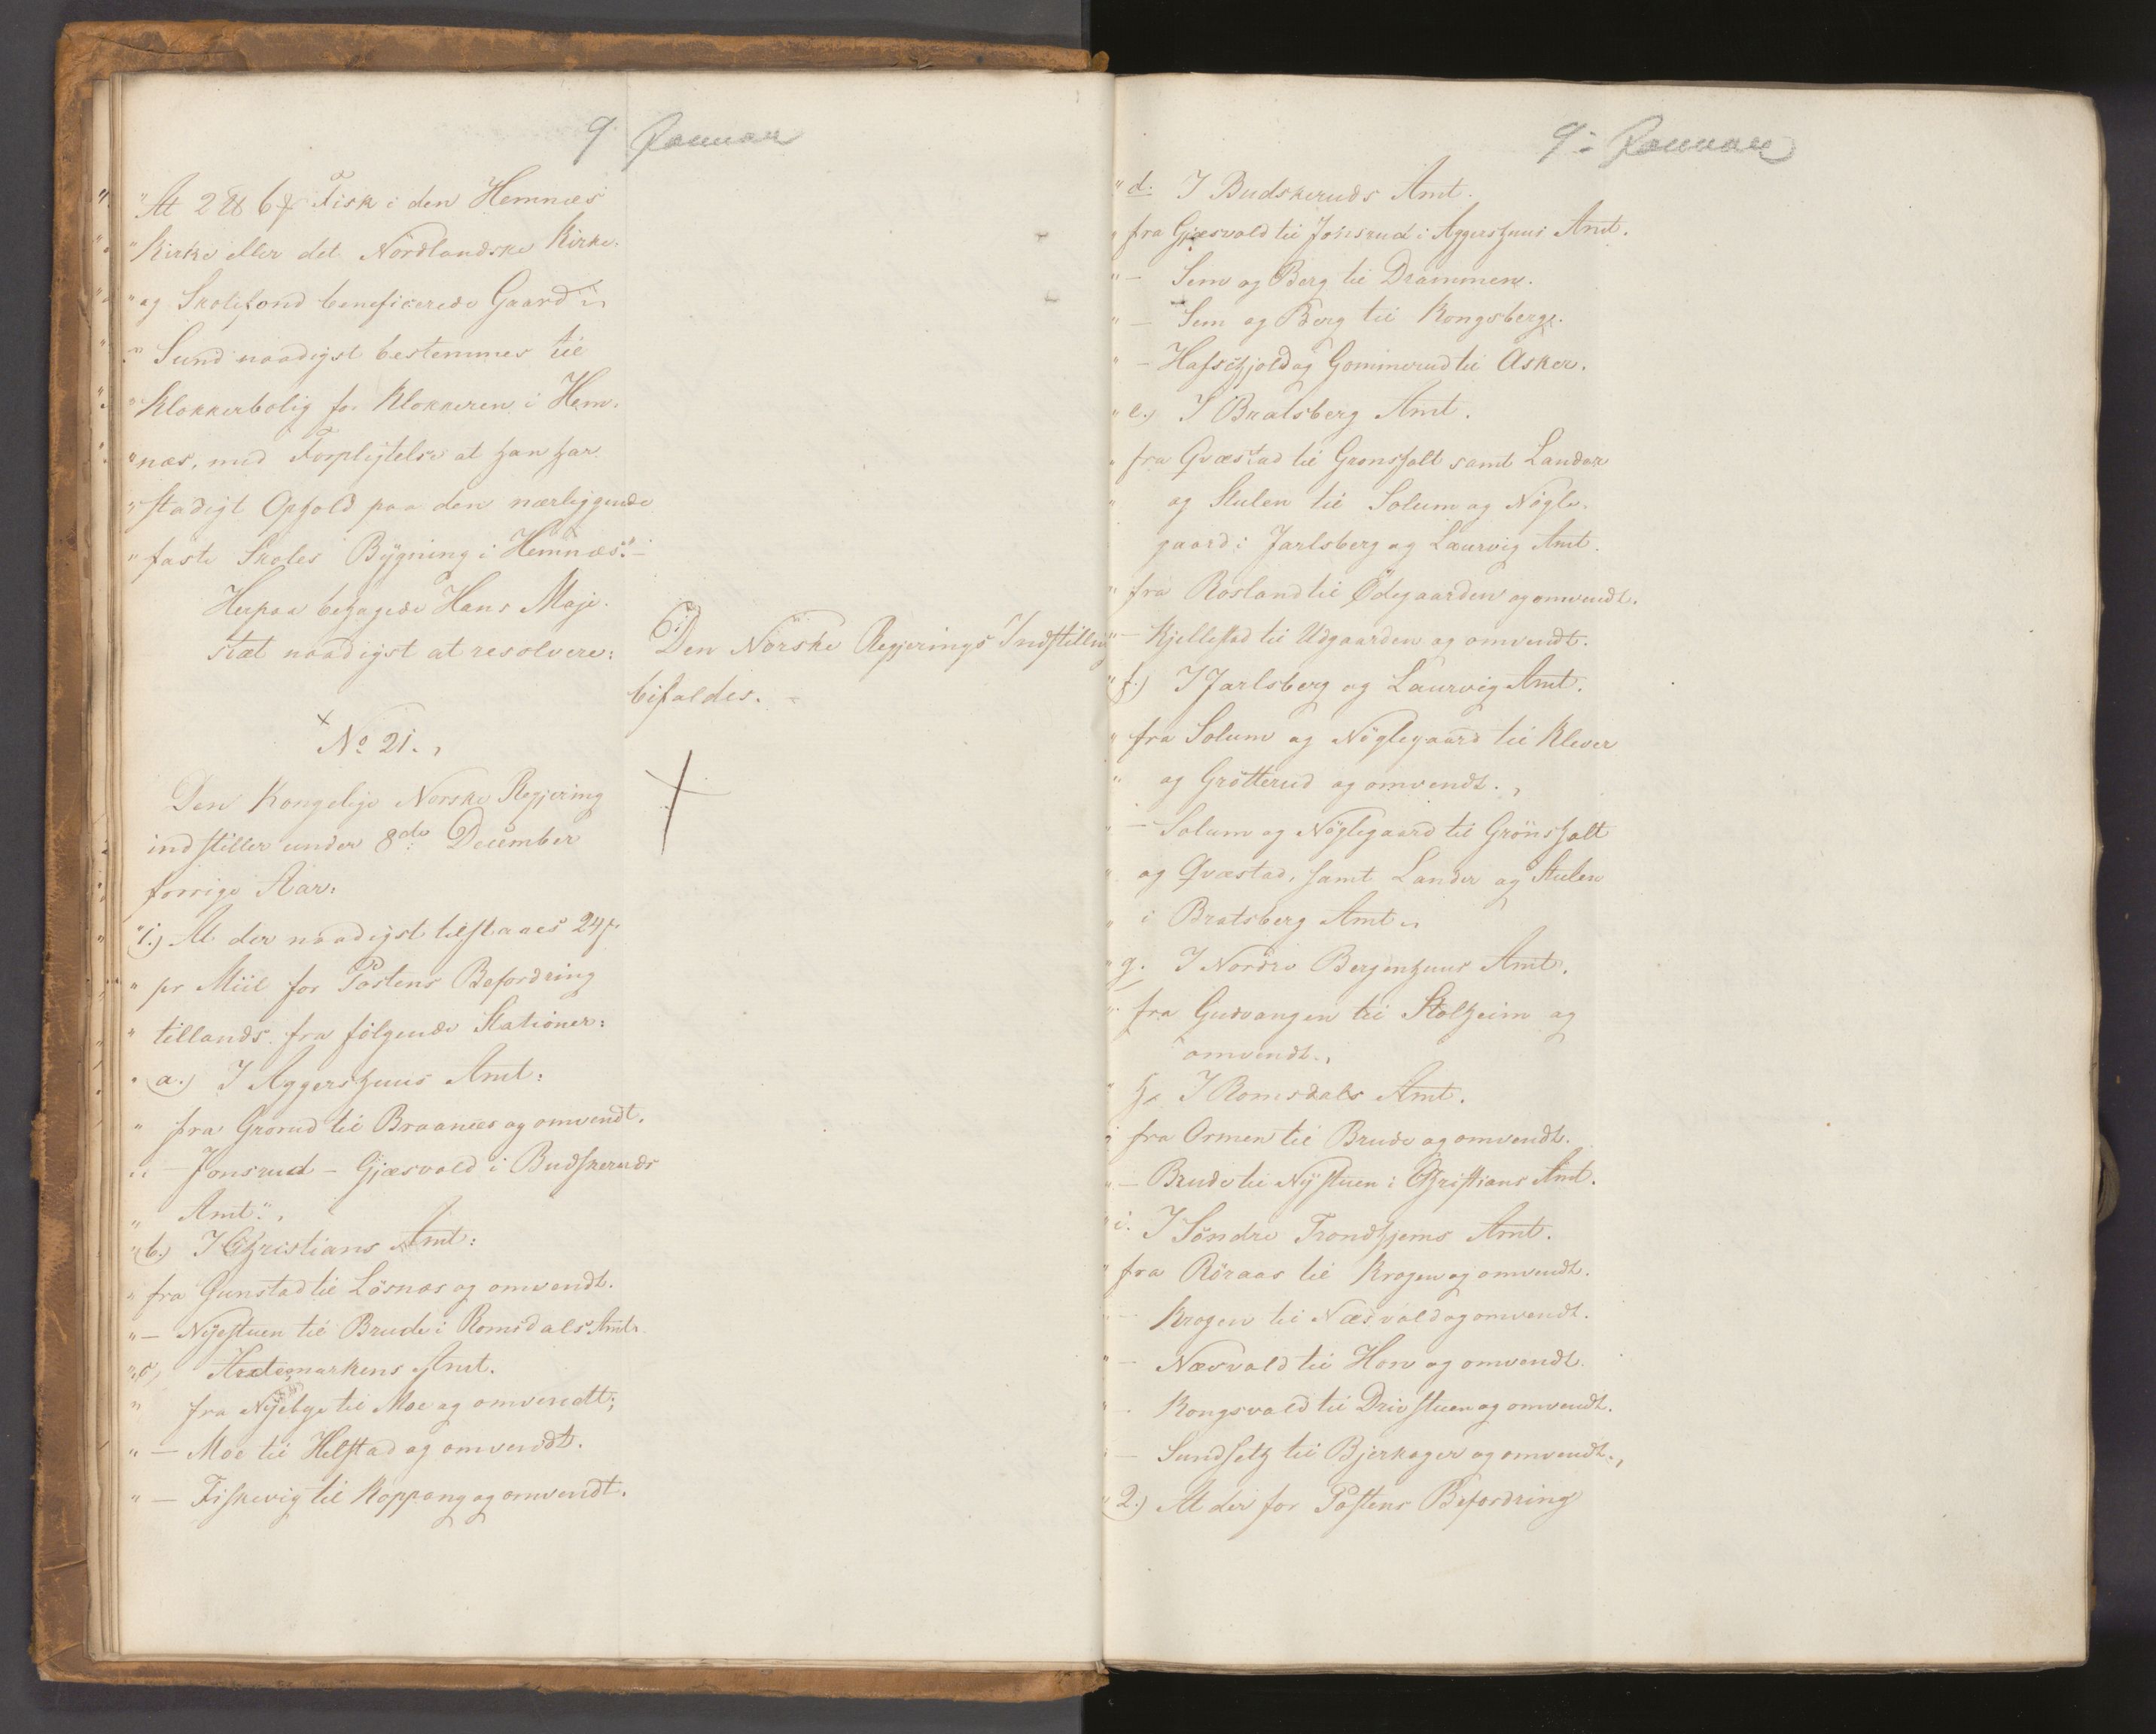 9 Januar
"At 2 ℔ 6 ꝭ Fisk i den Hemnæs
"Kirke eller det Nordlandske Kirke-
"og Skolefond beneficerede Gaard
"Sund naadigst bestemmes til
"Klokkerbolig for Klokkeren i Hem-
"næs, med Forpligtelse at han har
"stadigt Ophold paa den nærliggende
"faste Skoles Bygning i Hemnæs."-
Herpaa behagede Hans Maje-
stæt naadigst at resolvere:
Den Norske Regjerings Indstilling
bifaldes.
No 21.
Den Kongelige Norske Regjering
indstiller under 8de December
forrige Aar:
"1.) At der naadigst tilstaaes 24 ꝭ
" pr Miil for Postens Befordring
" tillands fra følgende Stationer:
" a.) I Aggershuus Amt:
" fra Grorud til Braanæs og omvendt.
" - Jonsrud - Gjæsvold i Budskeruds
" Amt.",
" b.) I Christians Amt:
" fra Gunstad til Løsnæs og omvendt.
" - Nyestuen til Brude i Romsdals Amt.
" c, Hedemarkens Amt.
" fra Nyebye til Moe og omvendt;
" - Moe til Helstad og omvendt.
" - Fiskevig til Koppang og omvendt.
9 Januar
" d. I Budskeruds Amt.
" fra Gjæsvold til Jonsrud i Aggershuus Amt.
" - Sem og Berg til Drammen.
" - Sem og Berg til Kongsberg.
" - Hafschjold og Gommerud til Asker.
" e.) I Bratsberg Amt.
" fra Qvæstad til Gronsholt samt Lander
" og Stulen til Solum og Nøgle-
gaard i Jarlsberg og Laurvig Amt.
" fra Rosland til Ødegaarden og omvendt.
" - Kjellestad til Udgaarden og omvendt.
" f.) I Jarlsberg og Laurvig Amt.
" fra Solum og Nøglegaard til Klever
" og Grøtterud og omvendt.,
" - Solum og Nøglegaard til Grønsholt
" og Qvæstad, samt Lander og Stulen
" i Bratsberg Amt
" g. I Nordre Bergenhuus Amt.
" fra Gudvangen til Stalheim og
omvendt.,
" h. I Romsdals Amt.
" fra Ormen til Brude og omvendt.
" - Brude til Nystuen i Christians Amt.
" i. I Søndre Trondhjems Amt.
" fra Røraas til Krogen og omvendt.
" - Krogen til Næsvold og omvendt.
" - Næsvold til Hov og omvendt.
" - Kongsvold til Drivstuen og omvendt.
" - Sundseth til Bjerkager og omvendt.,
" 2.) At der for Postens Befordring